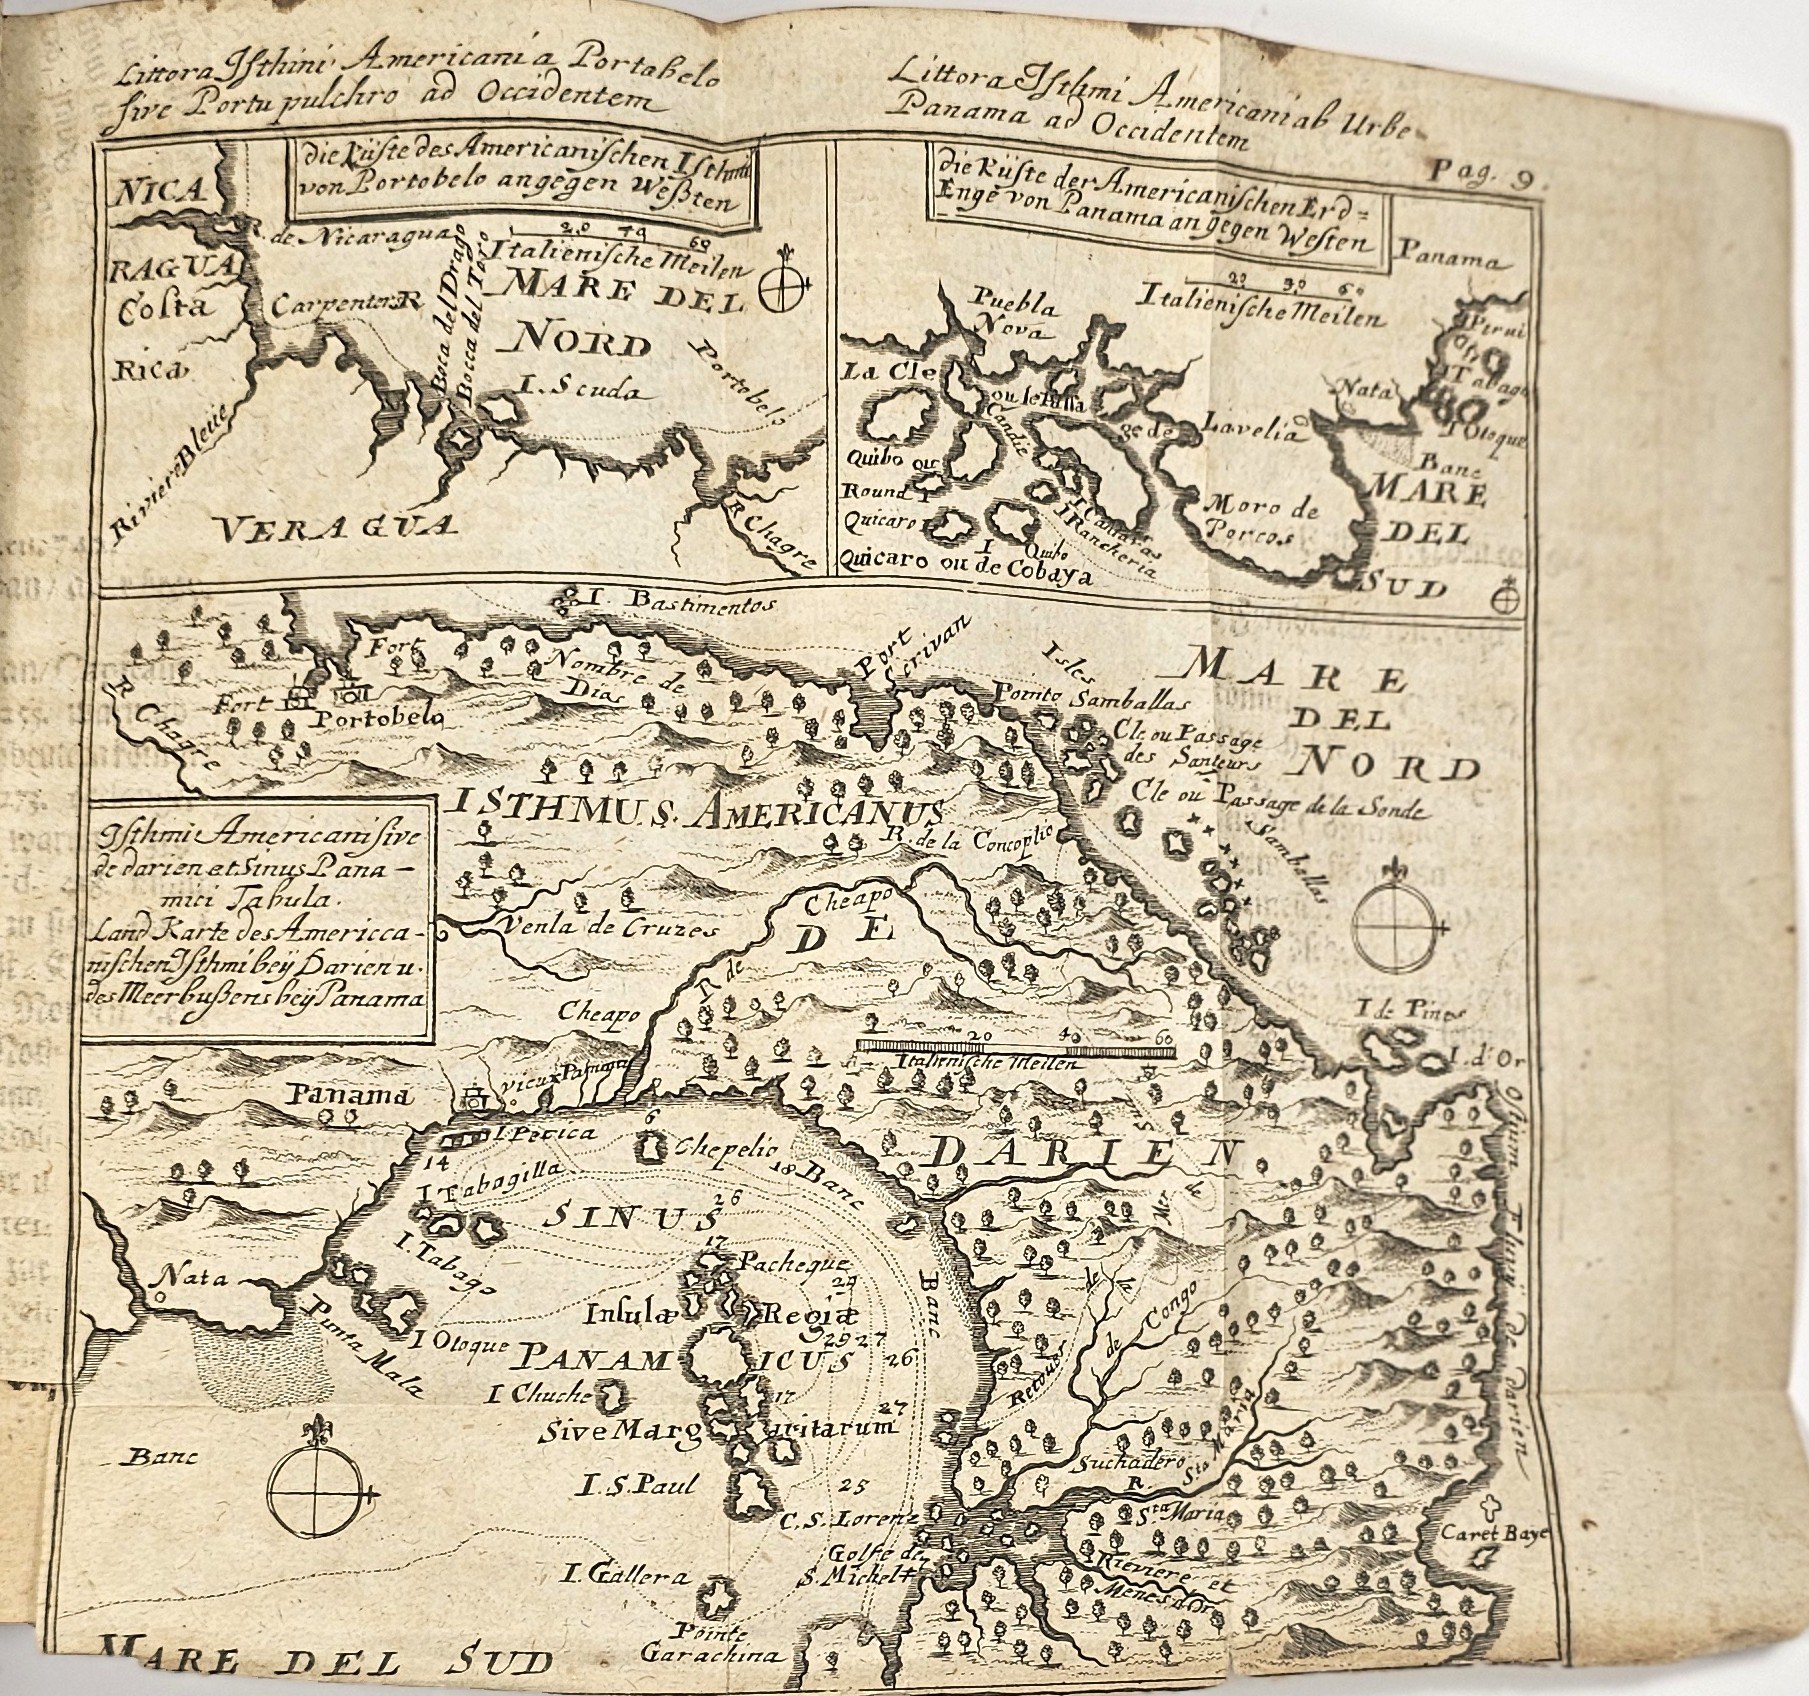 Littora Isthini Americani a Portabelo
sive Portu pulchro ad Occidentem
Littora Isthmi Americani ab Urbe
Panama ad Occidentem
Pag. 9.
die Küste des Americanischen Isthmi
von Portobelo angegen Weßten
NICA
RAGUA
R. de Nicaragua
Costa
Rica
Carpenters R
Boca del Drago
Bocca del Toro
20 40 60
Italienische Meilen
MARE DEL
NORD
I. Scuda
Portobelo
Riviere Bleüe
VERAGUA
R Chagre
die Küste der Americanischen Erd=
Enge von Panama an gegen Westen
Panama
20 30 60
Italienische Meilen
Puebla
Nova
La Cle
ou le passa
ge de
Candie
Quibo ou
Round I
Quicaro
I Quibo
Quicaro ou de Cobaya
I Canaras
I Rancheria
Lavelia
Moro de
Porcos
Nata
I Perui
I Tabago
I Otoque
Banc
MARE
DEL
SUD
I. Bastimentos
Fort
Fort
Portobelo
R Chagre
Nombre de
Dias
Port
Scrivan
Isles
Pointo Samballas
MARE
DEL
NORD
Cle ou Passage
des Santeurs
Cle ou Passage de la Sonde
Samballas
ISTHMUS. AMERICANUS
R. de la Conceptio
Isthmi Americani sive
de darien et Sinus Pana-
mici Tabula.
Land Karte des Americca-
nischen Isthmi beÿ Darien u.
des Meerbußens beÿ Panama
Venla de Cruzes
R de
Cheapo
DE
Cheapo
20 40 60
Italienische Meilen
I de Pines
I. d'Or
Panama
vieux Panama
I Perica
6
Chepelio
14
I Tabagilla
18 Banc
DARIEN
Ostium Fluvij de Darien
SINUS
26
17
I Tabago
Pacheque
29
Nata
Insulæ Regiæ
29 27
Punta Mala
I Otoque
PANAMICUS
26
Banc
Mer de
de la
de Congo
Retour
I Chuche
17
27
Sive Margaritarum
Banc
I. S. Paul
25
Suchadero
R. Sto Maria
C. S. Lorenz
Sta Maria
Caret Baye
Golfe de
S. Michel
Rieviere et
Menes d'Or
I. Gallera
Pointe
Garachina
MARE DEL SUD